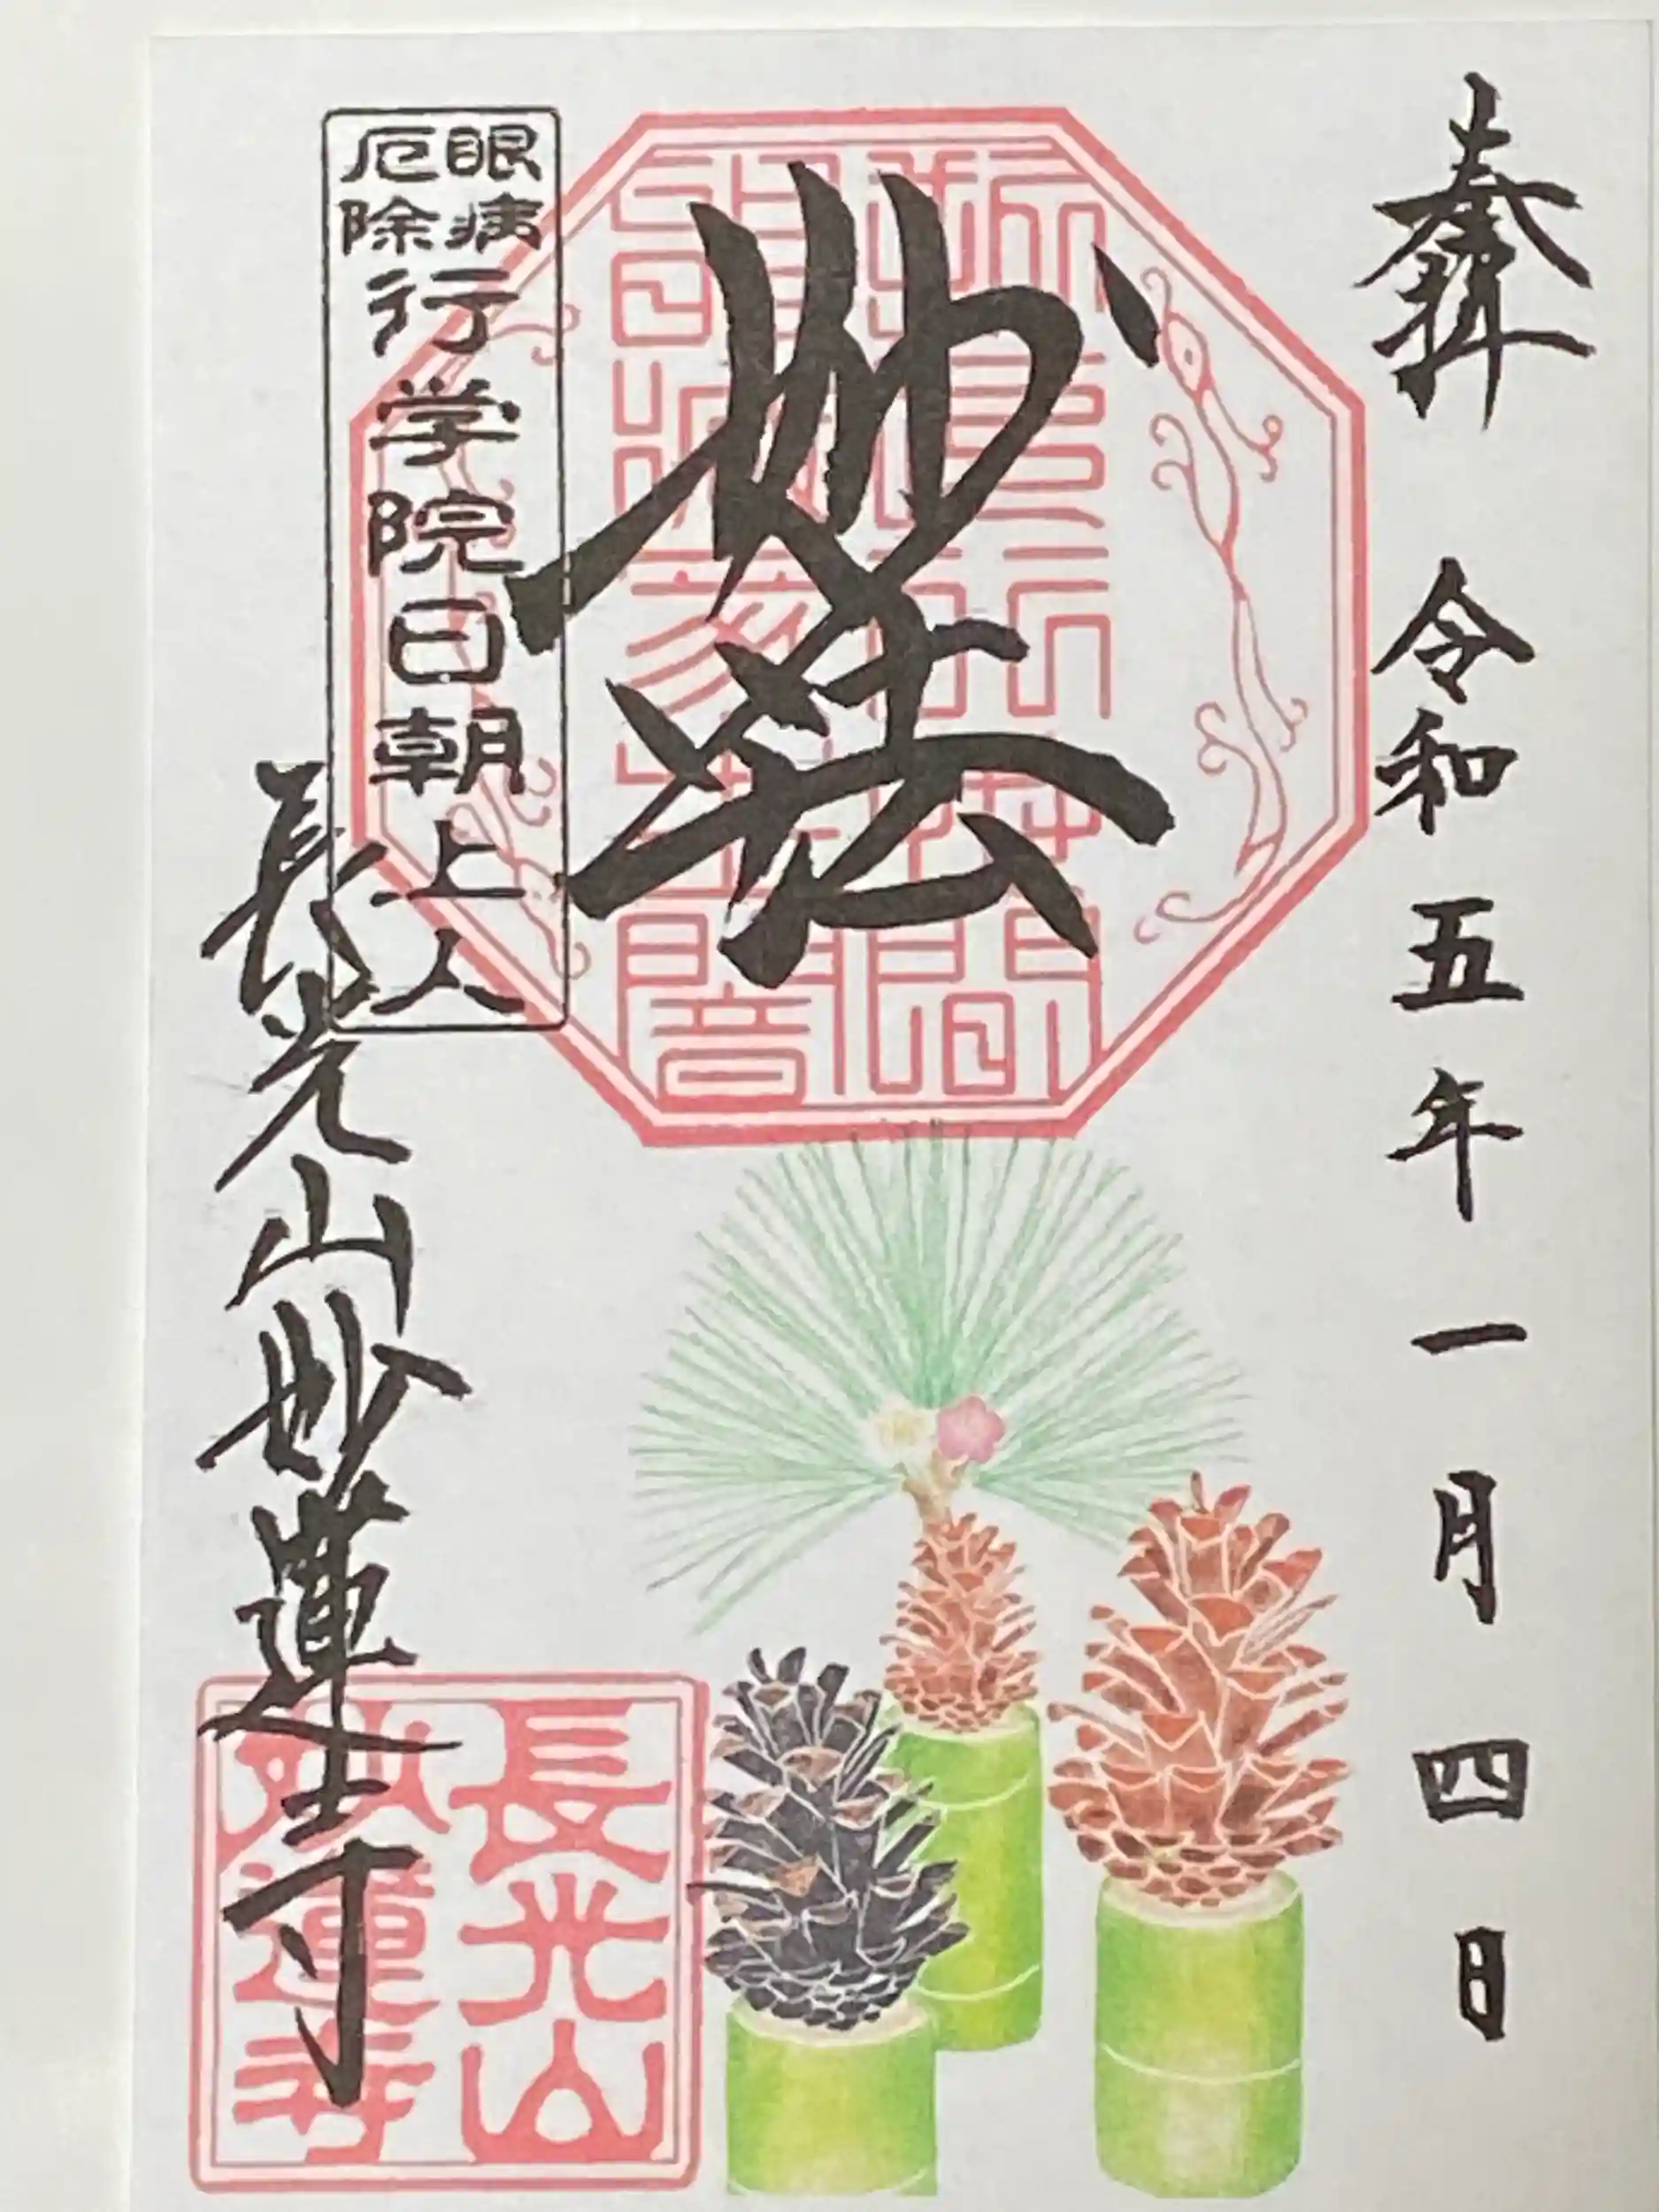 奉拝 令和五年一月四日
妙法
眼病
厄除
行学院日朝上人
長光山妙蓮寺
長光山
妙蓮寺